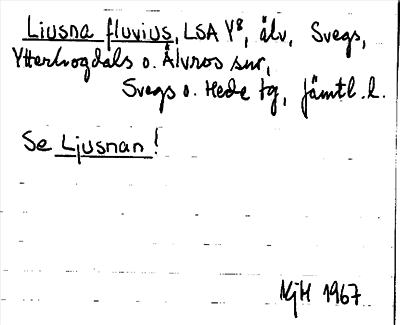 Liusna fluvius, LSA Y8, älv, Svegs,
Ytterhogdals o. Älvros snr,
Svegs o. Hede tg, Jämtl. l.
Se Ljusnan!
NjH 1967